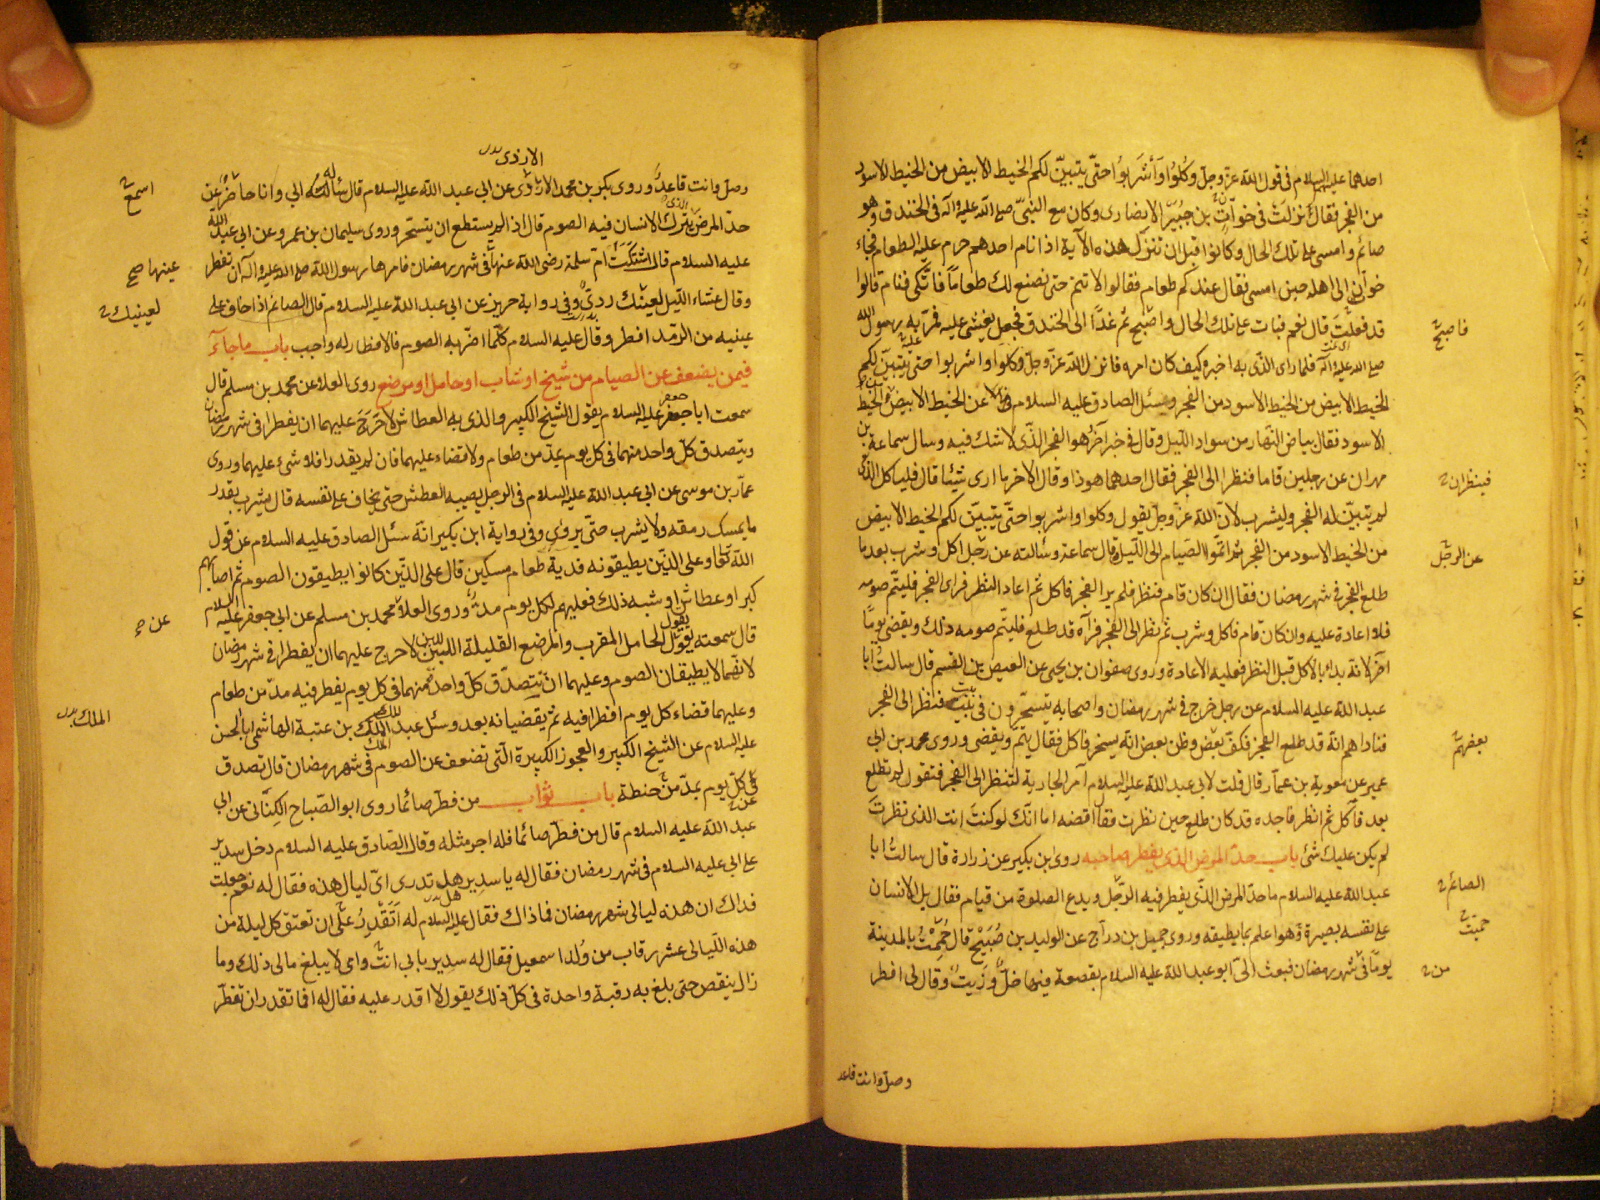 احدهما عليهما السلام فى قول الله عزّ وجلّ وكلوا واشربوا حتّى يتبيّن لكم الخيط الابيض من الخيط الاسود
من الفجر فقال نزلت فى خوّات بن جبير الانصارى وكان مع النبىّ صلى الله عليه وآله فى الخندق وهو
صائم وامسى على تلك الحال وكانوا قبل ان تنزل هذه الآية اذا نام احدهم حرم عليه الطعام فجاء
خوّات الى اهله حين امسى فقال عندكم طعام فقالوا لا تنم حتى نصنع لك طعاماً فاتّكى فنام قالوا
قد فعلت قال نعم فبات على تلك الحال واصبح ثم غدا الى الخندق فجعل يغشى عليه فمرّ به رسول الله
صلى الله عليه وآله فلما راى الذى به اخبره كيف كان امره فانزل الله عزّ وجلّ وكلوا واشربوا حتى يتبيّن لكم
الخيط الابيض من الخيط الاسود من الفجر وسئل الصادق عليه السلام عن الخيط الابيض من الخيط
الاسود فقال بياض النهار من سواد الليل وقال فى خبر آخر هو الفجر الذى لا شك فيه وسال سماعة بن
مهران عن رجلين قاما فنظرا الى الفجر فقال احدهما هو ذا وقال الآخر ما ارى شيئا قال فلياكل الذى
لم يتبيّن له الفجر وليشرب لانّ الله عزّ وجلّ يقول وكلوا واشربوا حتّى يتبيّن لكم الخيط الابيض
من الخيط الاسود من الفجر ثم اتمّوا الصيام الى الليل قال سماعة وسالته عن رجل اكل وشرب بعد ما
طلع الفجر فى شهر رمضان فقال ان كان قام فنظر فلم ير الفجر فاكل ثم اعاد النظر فراى الفجر فليتمّ صومه
فلا اعادة عليه وان كان قام فاكل وشرب ثم نظر الى الفجر فرآه قد طلع فليتمّ صومه ذلك ويقضى يوماً
آخر لانه بدا بالاكل قبل النظر فعليه الاعادة وروى صفوان بن يحيى عن العيص بن القسم قال سالت ابا
عبد الله عليه السلام عن رجل خرج فى شهر رمضان واصحابه يتسحّرون فى بيت فنظر الى الفجر
فناداهم انّه قد طلع الفجر فكفّ بعض وظن بعض انّه يسخر فاكل فقال يتمّ ويقضى وروى محمد بن ابى
عمير عن معوية بن عمار قال قلت لابى عبد الله عليه السلام آمر الجارية لتنظر الى الفجر فتقول لم يطلع
بعد فآكل ثم انظر فاجده قد كان طلع حين نظرت فقال اقضه اما انّك لو كنت انت الذى نظرت
لم يكن عليك شئ باب حدّ المرض الذى يفطر صاحبه روى ابن بكير عن زرارة قال سالت ابا
عبد الله عليه السلام ما حدّ المرض الّذى يفطر فيه الرجل ويدع الصلوة من قيام فقال بل الانسان
على نفسه بصيرة وهو اعلم بما يطيقه وروى جميل بن درّاج عن الوليد بن صبيح قال حممت بالمدينة
يوماً فى شهر رمضان فبعث الىّ ابو عبد الله عليه السلام بقصعة فيها خلّ وزيت وقال لى افطر
فاصبح
فينظران
عن الرجل
بعضهم
الصائم
حميت
من
وصلّ وانت قاعد
الازدى بدل
وصلّ وانت قاعد وروى بكر بن محمد الازدى عن ابى عبد الله عليه السلام قال ساله ابى وانا حاضر عن
حدّ المرض الذى يترك الانسان فيه الصوم قال اذا لم يستطع ان يتسحّر وروى سليمان بن عمرو عن ابى عبد الله
عليه السلام قال اشتكت امّ سلمة رضى الله عنها فى شهر رمضان فامرها رسول الله صلى الله عليه وآله ان تفطر
وقال عشاء الليل لعينك ردىّ وفى رواية حريز عن ابى عبد الله عليه السلام قال الصائم اذا خاف على
عينيه من الرمد افطر وقال عليه السلام كلّما اضرّ به الصوم فالافطار له واجب باب ما جاء
فيمن يضعف عن الصيام من شيخ او شاب او حامل او مرضع روى العلا عن محمد بن مسلم قال
سمعت ابا جعفر عليه السلام يقول الشيخ الكبير والذى به العطاش لا حرج عليهما ان يفطرا فى شهر رمضان
ويتصدق كلّ واحد منهما فى كل يوم بمدّ من طعام ولا قضاء عليهما فان لم يقدرا فلا شئ عليهما وروى
عمار بن موسى عن ابى عبد الله عليه السلام فى الرجل يصيبه العطش حتى يخاف على نفسه قال يشرب بقدر
ما يمسك رمقه ولا يشرب حتى يروى وفى رواية ابن بكير انّه سئل الصادق عليه السلام عن قول
الله تعالى وعلى الذين يطيقونه فدية طعام مسكين قال على الذين كانوا يطيقون الصوم ثم اصابهم
كبر او عطاش او شبه ذلك فعليهم لكل يوم مدّ وروى العلا محمد بن مسلم عن ابى جعفر عليه السلام
قال سمعته يقول الحامل المقرب والمرضع القليلة اللبن لا حرج عليهما ان يفطرا فى شهر رمضان
لانّهما لا يطيقان الصوم وعليهما ان يتصدّق كلّ واحدة منهما فى كل يوم يفطر فيه مدّ من طعام
وعليهما قضاء كل يوم افطرا فيه ثم يقضيانه بعد وسئل عبد الملك بن عتبة الهاشمى ابا الحسن
عليه السلام عن الشيخ الكبير والعجوز الكبيرة الّتى تضعف عن الصوم فى شهر رمضان قال تصدق
فى كل يوم بمدّ من حنطة باب ثواب من فطّر صائما روى ابو الصباح الكنانى عن ابى
عبد الله عليه السلام قال من فطّر صائما فله اجر مثله وقال الصّادق عليه السلام دخل سدير
على ابى عليه السلام فى شهر رمضان فقال له يا سدير هل تدرى اىّ ليال هذه فقال له نعم جعلت
فداك ان هذه ليالى شهر رمضان فما ذاك فقال عليه السلام له اتقدر على ان تعتق كل ليلة من
هذه الليالى عشر رقاب من ولد اسمعيل فقال له سدير بابى انت وامى لا يبلغ مالى ذلك وما
زال ينقص حتى بلغ به رقبة واحدة فى كلّ ذلك يقول لا اقدر عليه فقال له افما تقدر ان تفطّر
اسمع
عينها صح
لعينيك
عن
الملك بدل